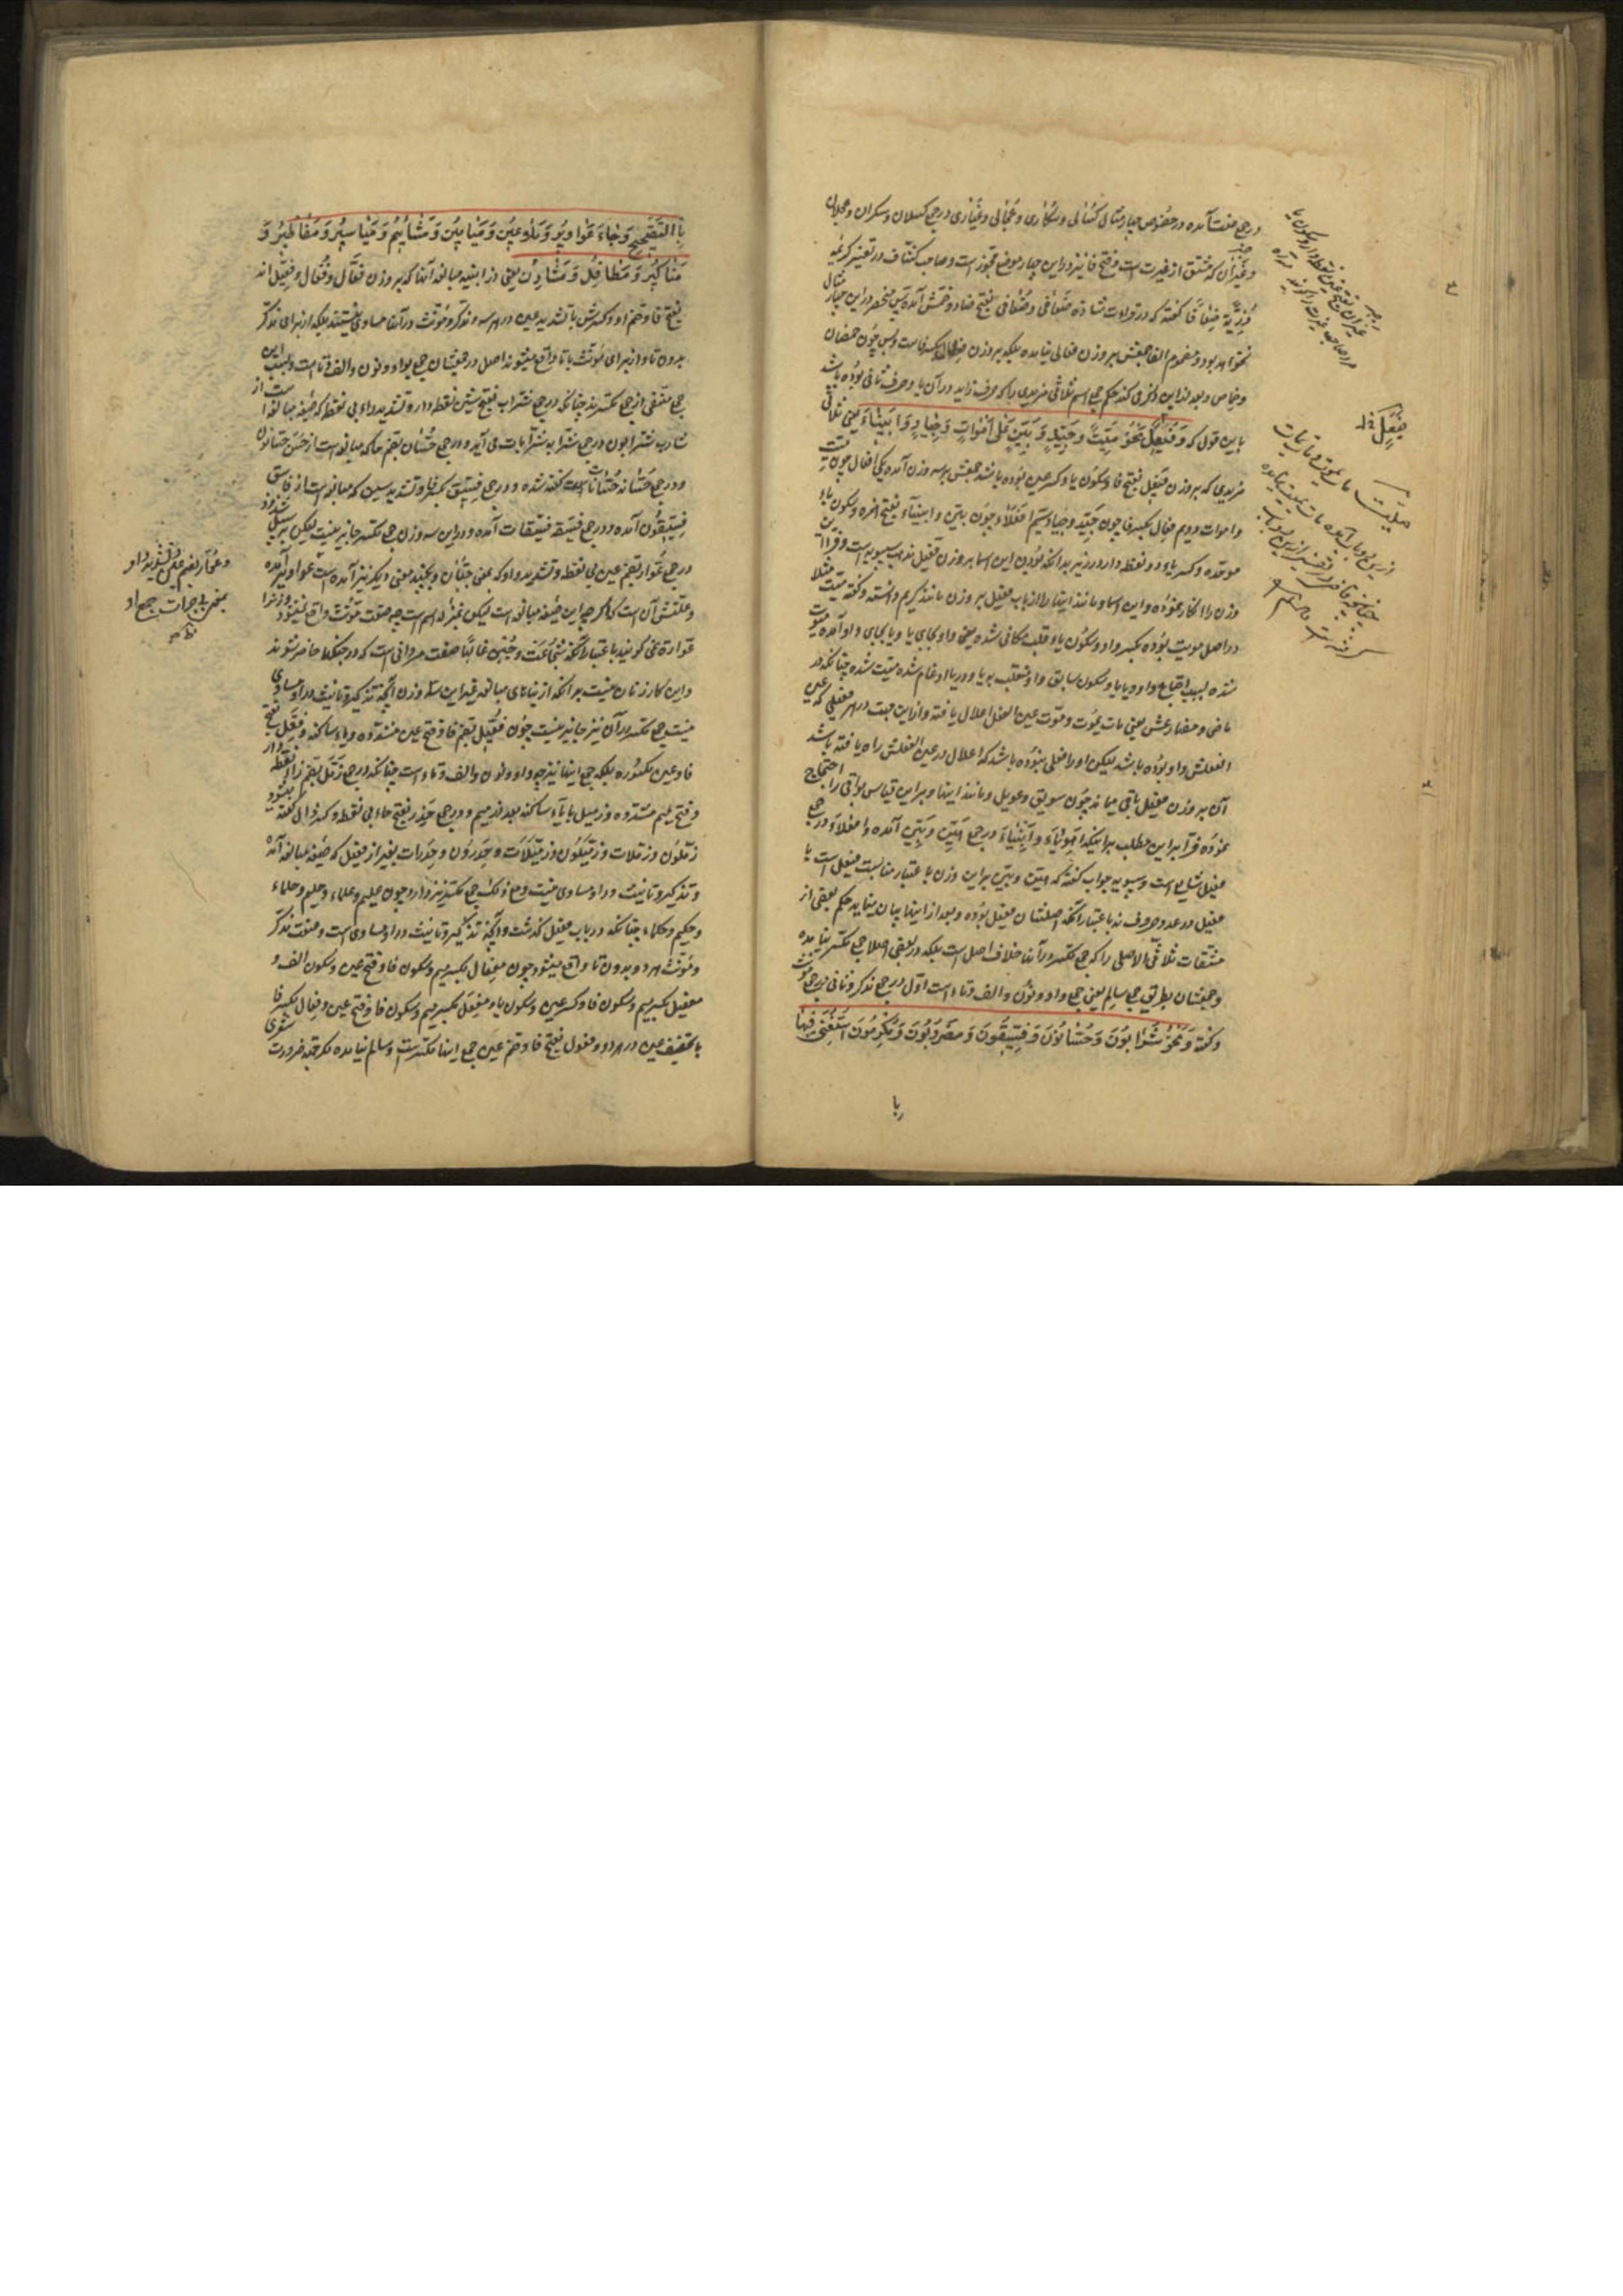 در جمع صفت آمده در خصوص چهار مثال کسالی و سکاری و عجالی و غیاری در جمع کسلان و سکران و عجلان
و غیران که مشتق از غیرت است و فتح فا نیز در این چهار موضع مجوز است و صاحب کشاف در تفسیر کریمه
ذریة ضعافا گفته که در قراءت شاذه ضعافی و ضعافی بفتح ضاد و ضمش آمده پس منحصر در این چهار مثال
نخواهد بود و مضموم الفا جمعش بر وزن فعالی نیامده بلکه بر وزن فعال بکسر فاست و بس چون خمصان
و خماص و بعد از این ذکر می کند حکم جمع اسم ثلاثی مزیدی را که حرف زاید در آن یا و حرف ثانی بوده باشد
باین قول که و فیعل نحو میت و جید و بین علی اموات و جیاد و ابیناء یعنی ثلاثی
مزیدی که بر وزن فیعل بفتح فا و سکون یا و کسر عین بوده باشد جمعش بر سه وزن آمده یکی افعال چون میت
و اموات دویم فعال بکسر فا چون جید و جیاد سیم افعلاء چون بین و ابیناء بفتح همزه و سکون باء
موحده و کسر یاء دو نقطه دار در زیر بدانکه بودن این اسما بر وزن فیعل مذهب سیبویه است و فرا این
وزن را انکار نموده و این اسما و مانند اینها را از باب فعیل بر وزن مانند کریم دانسته و گفته میت مثلا
در اصل مویت بوده بکسر واو و سکون یاء قلب مکانی شده یعنی واو بجای یا و یا بجای واو آمده میوت
شده بسبب اجتماع واو و یا با سکون سابق واو منقلب بیا و در یا ادغام شده میت شده چنانکه در
ماضی و مضارعش یعنی مات یموت و موت عین الفعل اعلال یافته و از این جهت در هر فعیلی که عین
الفعلش واو بوده باشد لیکن او را فعلی نبوده باشد که اعلال در عین الفعلش راه یافته باشد
آن بر وزن فعیل باقی میماند چون سویق و عویل و مانند اینها و بر این قیاس بواقی را احتجاج
نموده فرا بر این مطلب براینکه اهوناء و ابیناء در جمع هین و بین آمده و افعلاء در جمع
فعیل شایع است و سیبویه جواب گفته که هین و بین بر این وزن باعتبار مناسبت فیعل است با
فعیل در عدد حروف نه باعتبار آنکه اصلشان فعیل بوده و بعد از اینها بیان مینماید حکم بعضی از
مشتقات ثلاثی الاصلی را که جمع مکسر در آنها خلاف اصل است بلکه در بعضی اصلا جمع مکسر نیامده
و جمعشان بطریق جمع سالم یعنی جمع واو و نون و الف و تاء است اول در جمع مذکر و ثانی در جمع مؤنث
و گفته و نحو شرابون و حسانون و فسیقون و مضروبون و مکرمون استغنی فیها
با
فیعل
بالتصحیح و جاء عواویر و ملاعین و میامین و مشائیم و میاسیر و مفاطیر و
مناکیر و مطافل و مشادن یعنی در ابنیه مبالغه آنها که بر وزن فعال و فعال و فعیل اند
بفتح فا و ضم او و کسرش با تشدید عین در هر سه و مذکر و مؤنث در آنها مساوی نیستند بلکه از برای مذکر
بدون تا و از برای مؤنث با تا واقع میشوند اصل در جمعشان جمع بواو و نون و الف و تا است و بسبب این
جمع مستغنی از جمع مکسرند چنانکه در جمع شراب بفتح شین نقطه دار و تشدید راء بی نقطه که صیغه مبالغه است از
شارب شرابون و در جمع شرابه شرابات می آید و در جمع حسان بضم حا که مبالغه است از حسن حسانون
و در جمع حسانه حسانات گفته شده و در جمع فسیق بکسر فا و تشدید سین که مبالغه است از فاسق
فسیقون آمده و در جمع فسیقه فسیقات آمده و در این سه وزن جمع مکسر جایز نیست لیکن بر سبیل شذوذ
در جمع عوار بضم عین بی نقطه و تشدید واو که بمعنی جبان و بمعنی دیگر نیز آمده است عواویر آمده
و علتش آن است که اگر چه این صیغه مبالغه است لیکن بمنزله اسم است چه صفت مؤنث واقع نمیشود و زنرا
عواره نمی گویند باعتبار آنکه شجاعت و جبن غالبا صفت مردانی است که در جنگها حاضر شوند
و این کار زنان نیست بدانکه از بناهای مبالغه غیر این سه وزن آنچه تذکیر و تانیث در او مساوی
نیست جمع مکسر در آن نیز جایز نیست چون فعیل بضم فا و فتح عین مشدده و یاء ساکنه و فعل بفتح
فا و عین مکسوره بلکه جمع اینها نیز بواو و نون و الف و تاء است چنانکه در جمع زمل بضم زاء نقطه دار
و فتح میم مشدده و زمیل با یاء ساکنه بعد از میم و در جمع حذر بفتح حاء بی نقطه و کسر ذال گفته میشود
زملون و زملات و زمیلون و زمیلات و حذرون و حذرات بغیر از فعیل که صیغه مبالغه آمده
و تذکیر و تانیث در او مساوی نیست و مع ذلک جمع مکسر نیز دارد چون علیم و علماء و حلیم و حلماء
و حکیم و حکماء چنانکه در باب فعیل گذشت و آنچه تذکیر و تانیث در او مساوی است و صفت مذکر
و مؤنث هر دو بدون تا واقع میشود چون مفعال بکسر میم و سکون فا و فتح عین و سکون الف و
مفعیل بکسر میم و سکون فا و کسر عین و سکون یا و مفعل بکسر میم و سکون فا و فتح عین و فعال بکسر فا
با تخفیف عین در هر دو و فعول بفتح فا و ضم عین جمع اینها مکسر است و سالم نیامده مگر بجهة ضرورت شعری